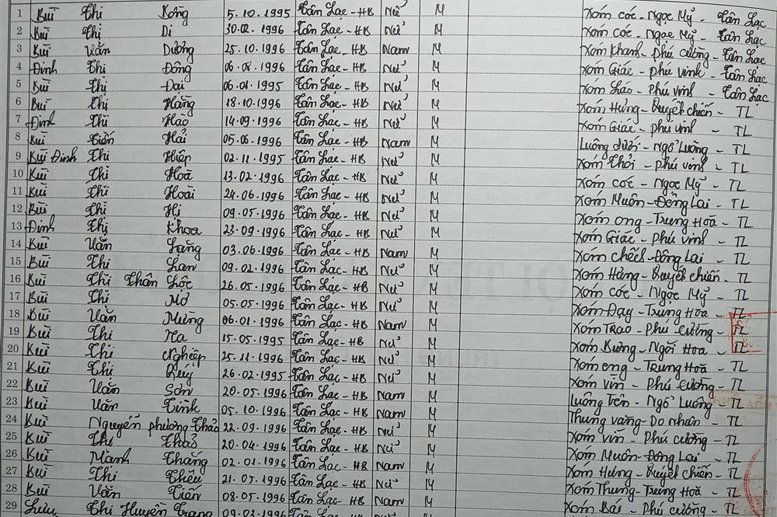 1 Bùi Thị Bống 5.10.1995 Tân Lạc-HB Nữ M Xóm Cóc - Ngọc Mỹ - Tân Lạc
2 Bùi Thị Di 30.02.1996 Tân Lạc-HB Nữ M Xóm Cóc - Ngọc Mỹ - Tân Lạc
3 Bùi Văn Dương 25.10.1996 Tân Lạc-HB Nam M Xóm Khanh - Phú Cường - Tân Lạc
4 Đinh Thị Đông 06.08.1996 Tân Lạc-HB Nữ M Xóm Giác - Phú Vinh - Tân Lạc
5 Bùi Thị Đại 06.01.1995 Tân Lạc-HB Nữ M Xóm - Phú Vinh - Tân Lạc
6 Bùi Thị Hằng 18.10.1996 Tân Lạc-HB Nữ M Xóm Hưng - Quyết Chiến - TL
7 Đinh Thị Hảo 14.09.1996 Tân Lạc-HB Nữ M Xóm Giác - Phú Vinh - TL
8 Bùi Tiến Hải 05.06.1996 Tân Lạc-HB Nam M Luông dưới - Ngổ Luông - TL
9 Bùi Đinh Thị Hiệp 02.11.1995 Tân Lạc-HB Nữ M Xóm Thỏi - Phú Vinh - TL
10 Bùi Thị Hoà 13.02.1996 Tân Lạc-HB Nữ M Xóm Cóc - Ngọc Mỹ - TL
11 Bùi Thị Hoài 24.06.1996 Tân Lạc-HB Nữ M Xóm Muôn - Đông Lai - TL
12 Bùi Thị Hị 09.05.1996 Tân Lạc-HB Nữ M Xóm Ong - Trung Hoà - TL
13 Đinh Thị Khoa 23.09.1996 Tân Lạc-HB Nữ M Xóm Giác - Phú Vinh - TL
14 Bùi Văn Lăng 03.06.1996 Tân Lạc-HB Nam M Xóm Chếch - Đông Lai - TL
15 Bùi Thị Lan 09.02.1996 Tân Lạc-HB Nữ M Xóm Hưng - Quyết Chiến - TL
16 Bùi Thị Thân Lốc 26.05.1996 Tân Lạc-HB Nữ M Xóm Cóc - Ngọc Mỹ - TL
17 Bùi Thị Mơ 05.05.1996 Tân Lạc-HB Nữ M Xóm Đạy - Trung Hoà - TL
18 Bùi Văn Mừng 06.01.1996 Tân Lạc-HB Nam M Xóm Trao - Phú Cường - TL
19 Bùi Thị Na 15.05.1995 Tân Lạc-HB Nữ M Xóm Bưng - Ngòi Hoa - TL
20 Bùi Thị Nghiệp 25.11.1996 Tân Lạc-HB Nữ M Xóm Ong - Trung Hoà - TL
21 Bùi Thị Quý 26.02.1995 Tân Lạc-HB Nữ M Xóm Vin - Phú Cường - TL
22 Bùi Văn Sơn 20.05.1996 Tân Lạc-HB Nam M Luông Trên - Ngổ Luông - TL
23 Bùi Văn Tình 05.10.1996 Tân Lạc-HB Nam M Thung Vàng - Do Nhân - TL
24 Bùi Nguyễn Phương Thảo 22.09.1996 Tân Lạc-HB Nữ M Xóm Vin - Phú Cường - TL
25 Bùi Thị Thảo 20.04.1996 Tân Lạc-HB Nữ M Xóm Muôn - Đông Lai - TL
26 Bùi Mạnh Thắng 02.01.1996 Tân Lạc-HB Nam M Xóm Hưng - Quyết Chiến - TL
27 Bùi Thị Thêu 21.05.1996 Tân Lạc-HB Nữ M Xóm Thung - Trung Hoà - TL
28 Bùi Văn Tiến 08.05.1996 Tân Lạc-HB Nam M Xóm Bái - Phú Cường - TL
29 Lưu Thị Huyền Trang 09.02.1996 Tân Lạc-HB Nữ M